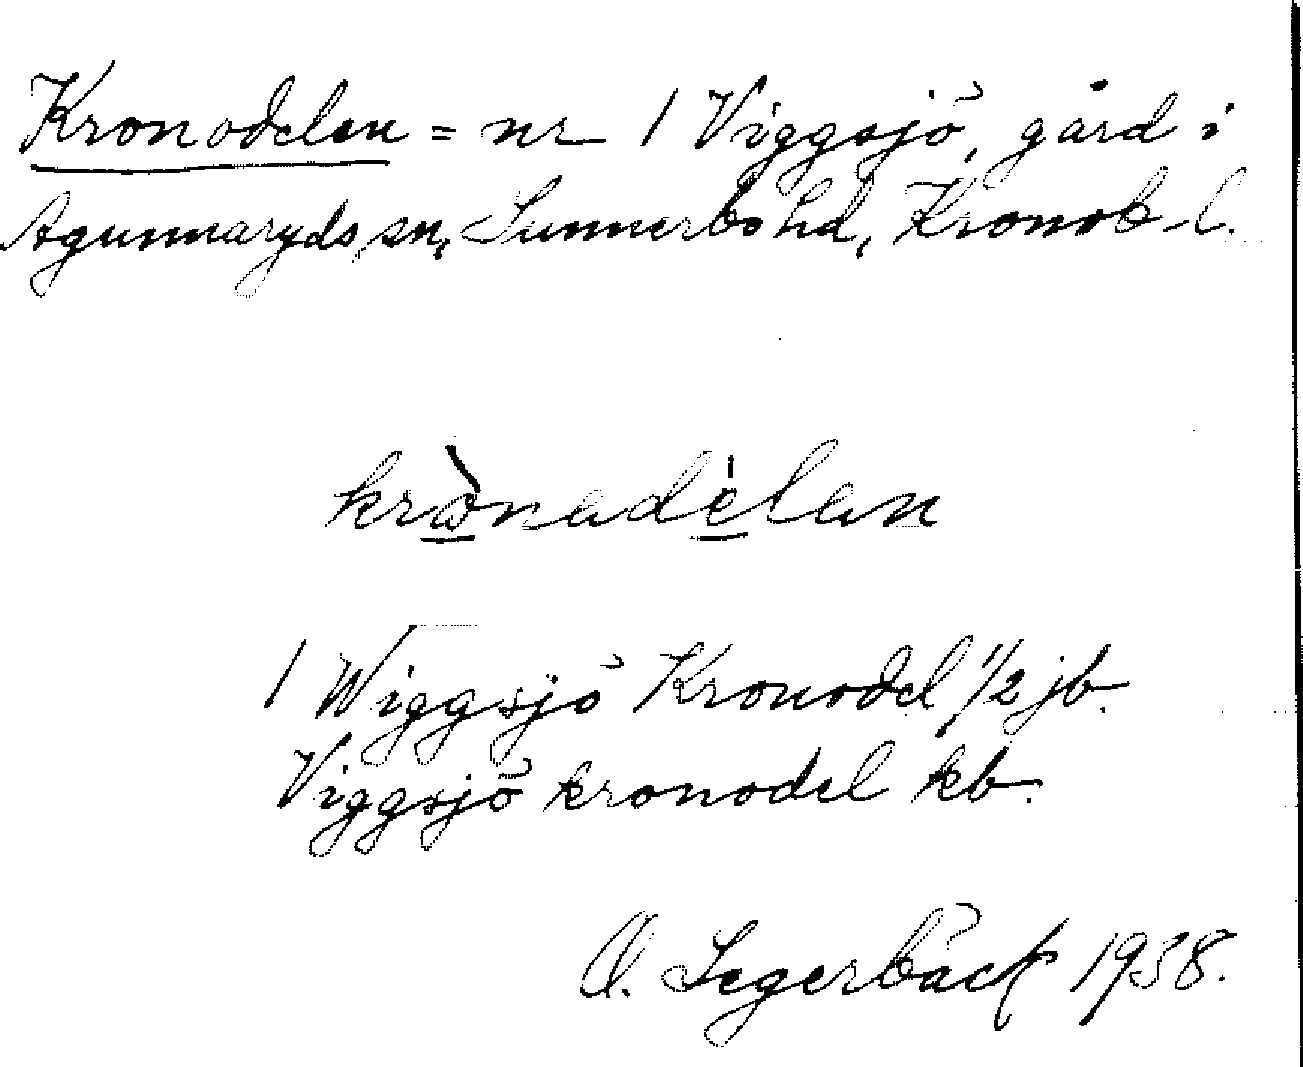 Kronodelen = nr 1 Viggsjö, gård i
Agunnaryds sn, Sunnerbo hd, Kronob. l.
krònadélan
1 Wiggsjö Kronodel 1/2 jb.
Viggsjö kronodel kb.
O. Segerbäck 1938.